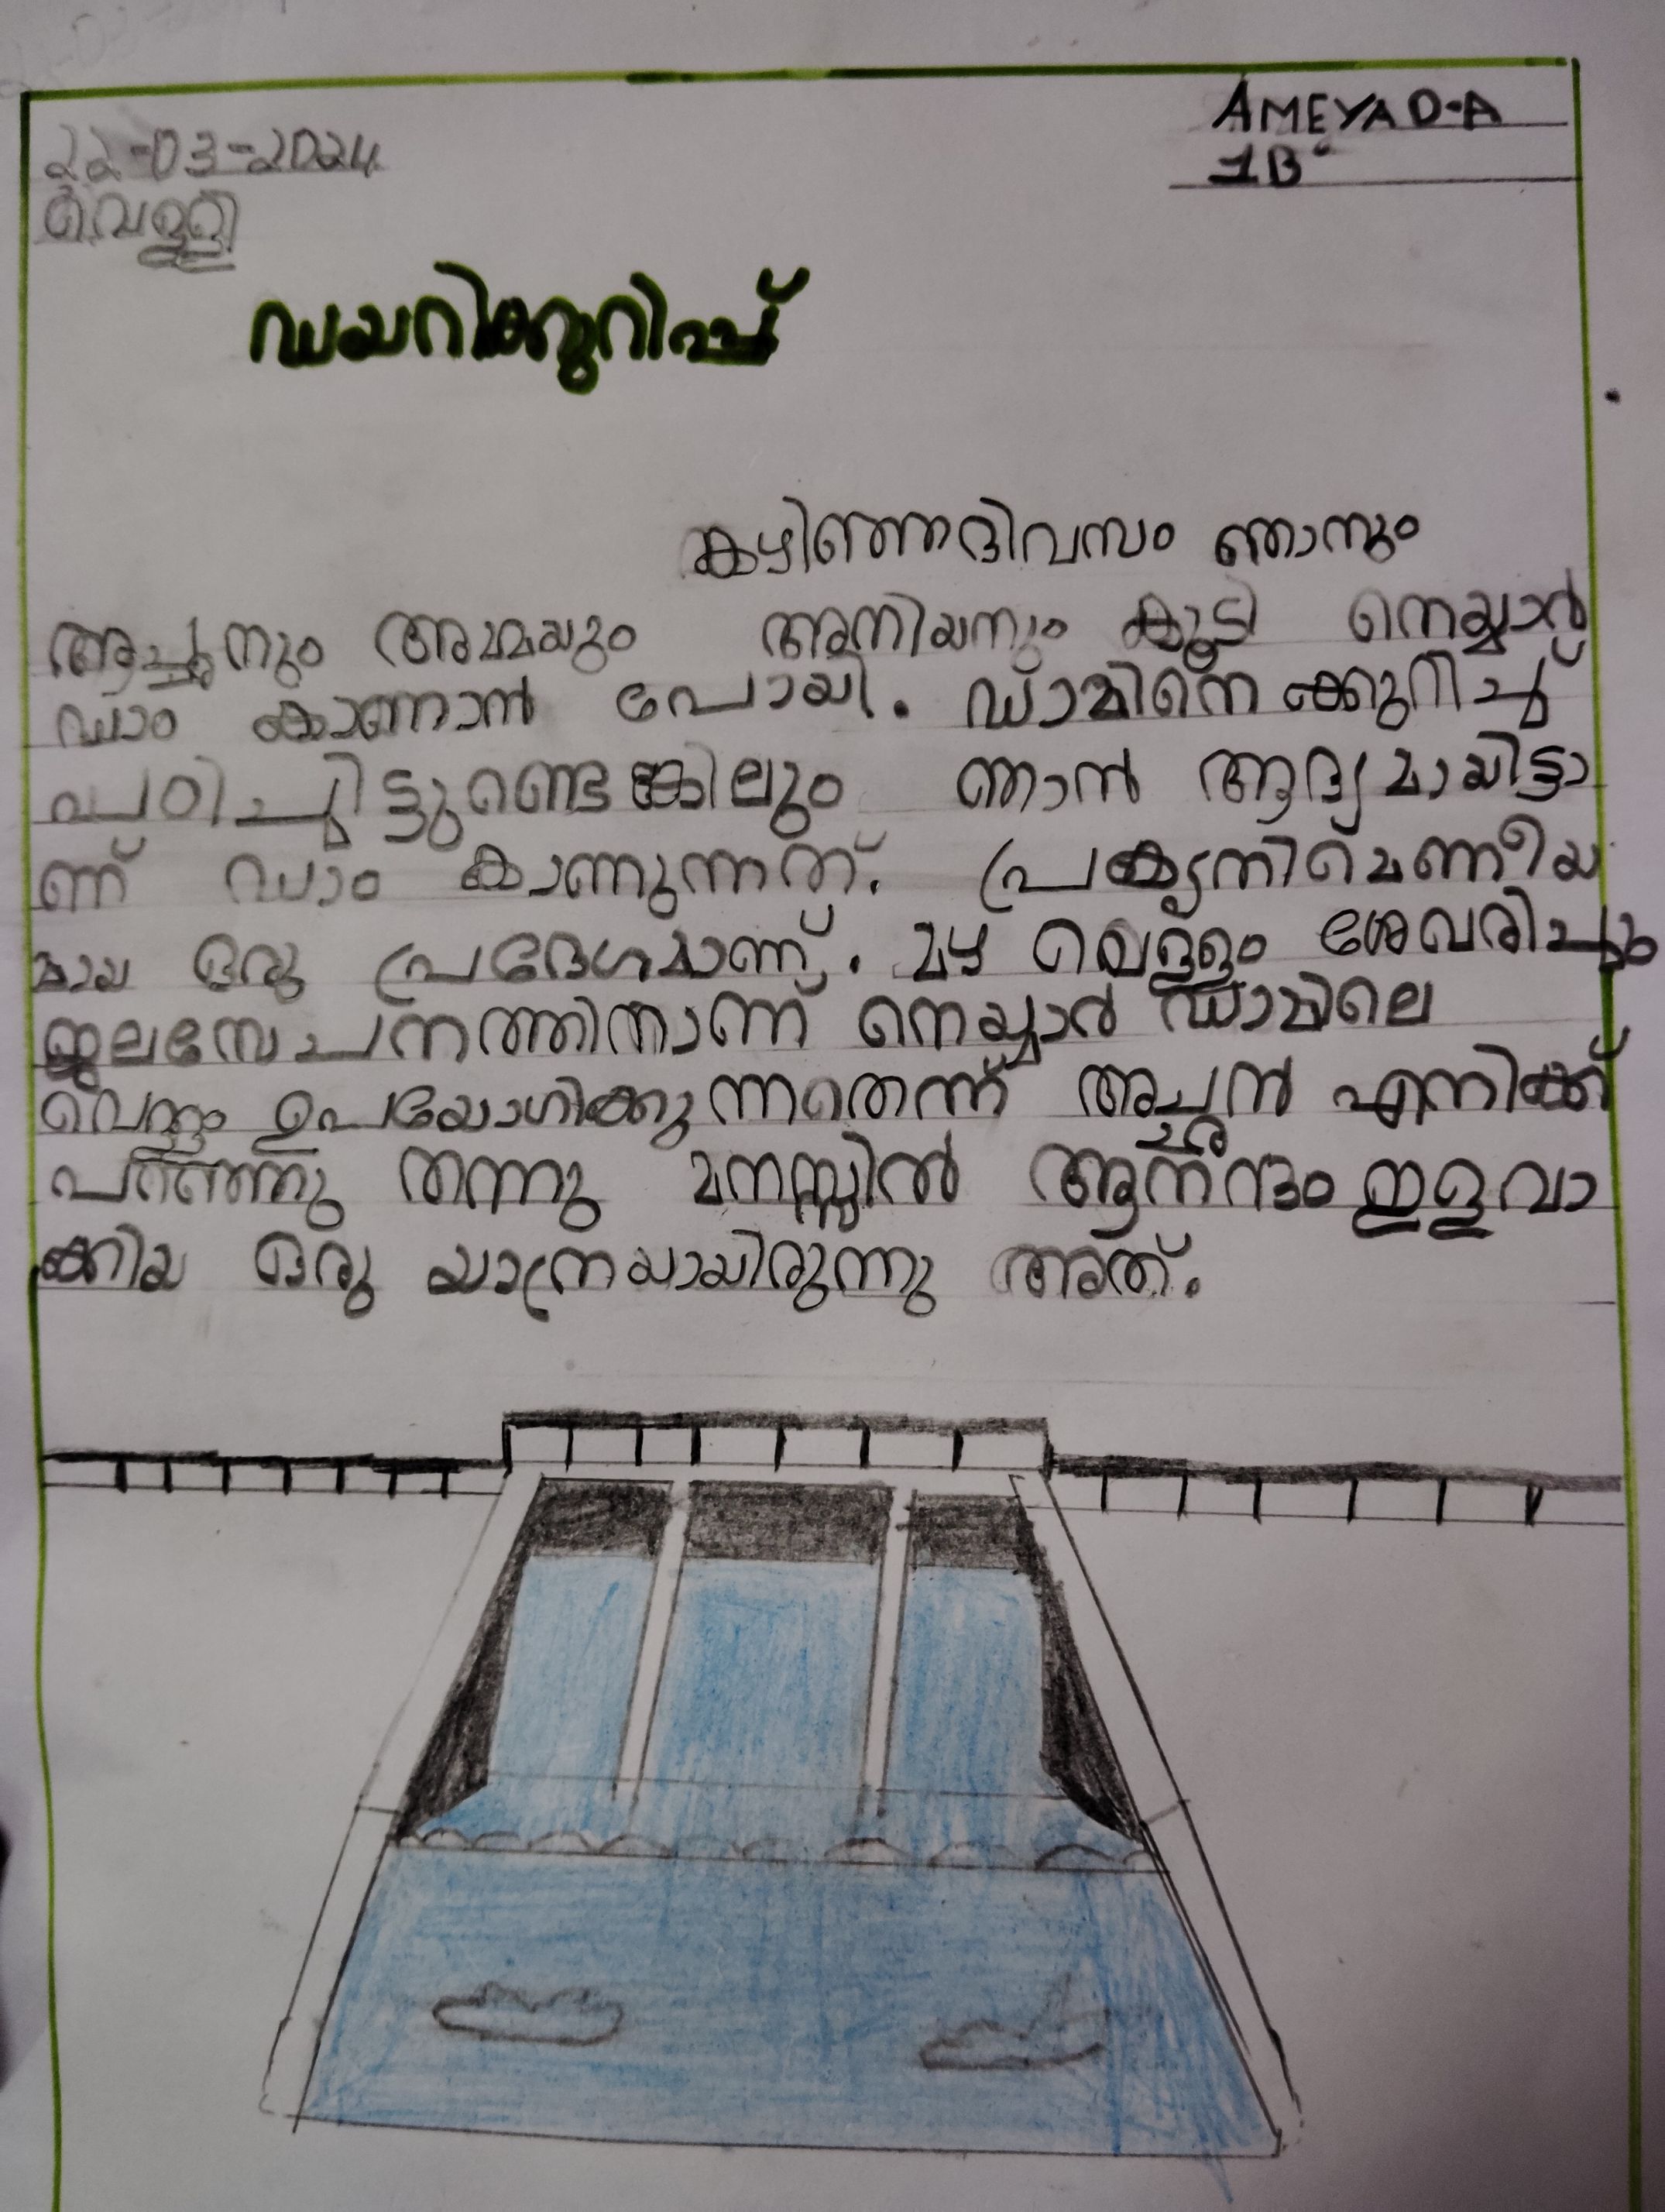 AMEYA D-A
1B
22-03-2024
വെള്ളി
ഡയറിക്കുറിപ്പ്
കഴിഞ്ഞദിവസം ഞാനും
അച്ഛനും അമ്മയും അനിയനും കൂടി നെയ്യാർ
ഡാം കാണാൻ പോയി. ഡാമിനെ ക്കുറിച്ച്
പഠിച്ചിട്ടുണ്ടെങ്കിലും ഞാൻ ആദ്യമായിട്ടാ
ണ് ഡാം കാണുന്നത്. പ്രകൃതിരമണീയ
മായ ഒരു പ്രദേശമാണ്. മഴ വെള്ളം ശേഖരിച്ചും
ജലസേചനത്തിനാണ് നെയ്യാർ ഡാമിലെ
വെള്ളം ഉപയോഗിക്കുന്നതെന്ന് അച്ഛൻ എനിക്ക്
പറഞ്ഞു തന്നു മനസ്സിൽ ആനന്ദം ഇളവാ
ക്കിയ ഒരു യാത്രയായിരുന്നു അത്.